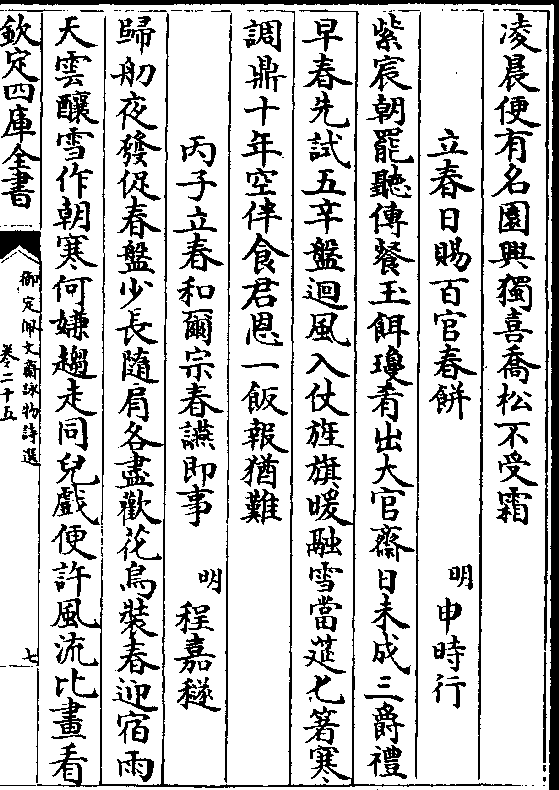 凌晨便有名園興獨喜喬松不受霜
立春日賜百官春餅
明申時行
紫宸朝罷聽傳餐玉餌瓊肴出大官齋日未成三爵禮
早春先試五辛盤迴風入仗旌旗暖融雪當筵匕箸寒
調鼎十年空伴食君恩一飯報猶難
丙子立春和爾宗春讌即事
明程嘉燧
歸舠夜發促春盤少長隨肩各盡歡花鳥裝春迎宿雨
天雲釀雪作朝寒何嫌趨走同兒戲便許風流比畫看
欽定四庫全書
御定佩文齋詠物詩選
卷二十五
七